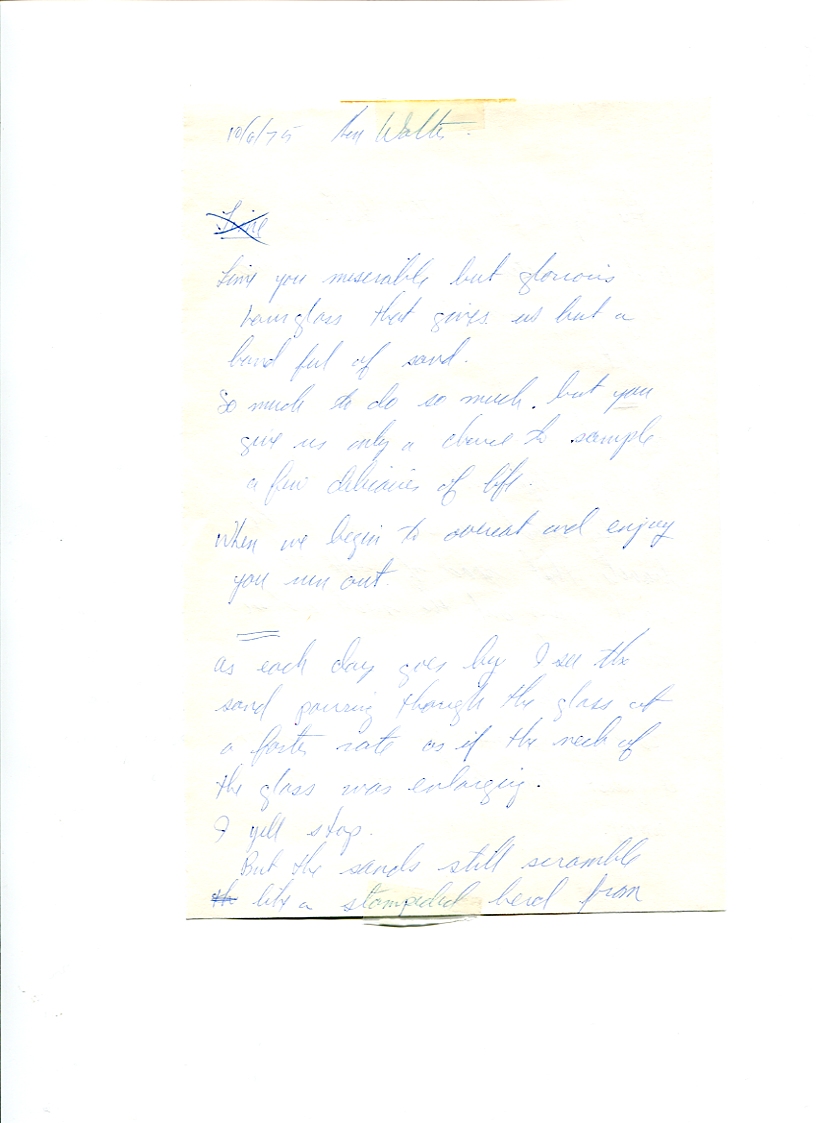 10/6/75 Ben Walter
Time
Time you miserable but glorious
hourglass that gives us but a
hand ful of sand.
So much to do so much, but you
give us only a chance to sample
a few delicacies of life.
When we begin to overeat and enjoy
you run out.
as each day goes by I see the
sand pouring though the glass at
a faster rate as if the neck of
the glass was enlarging.
I yell stop.
But the sands still scramble
th like a stampeded herd from